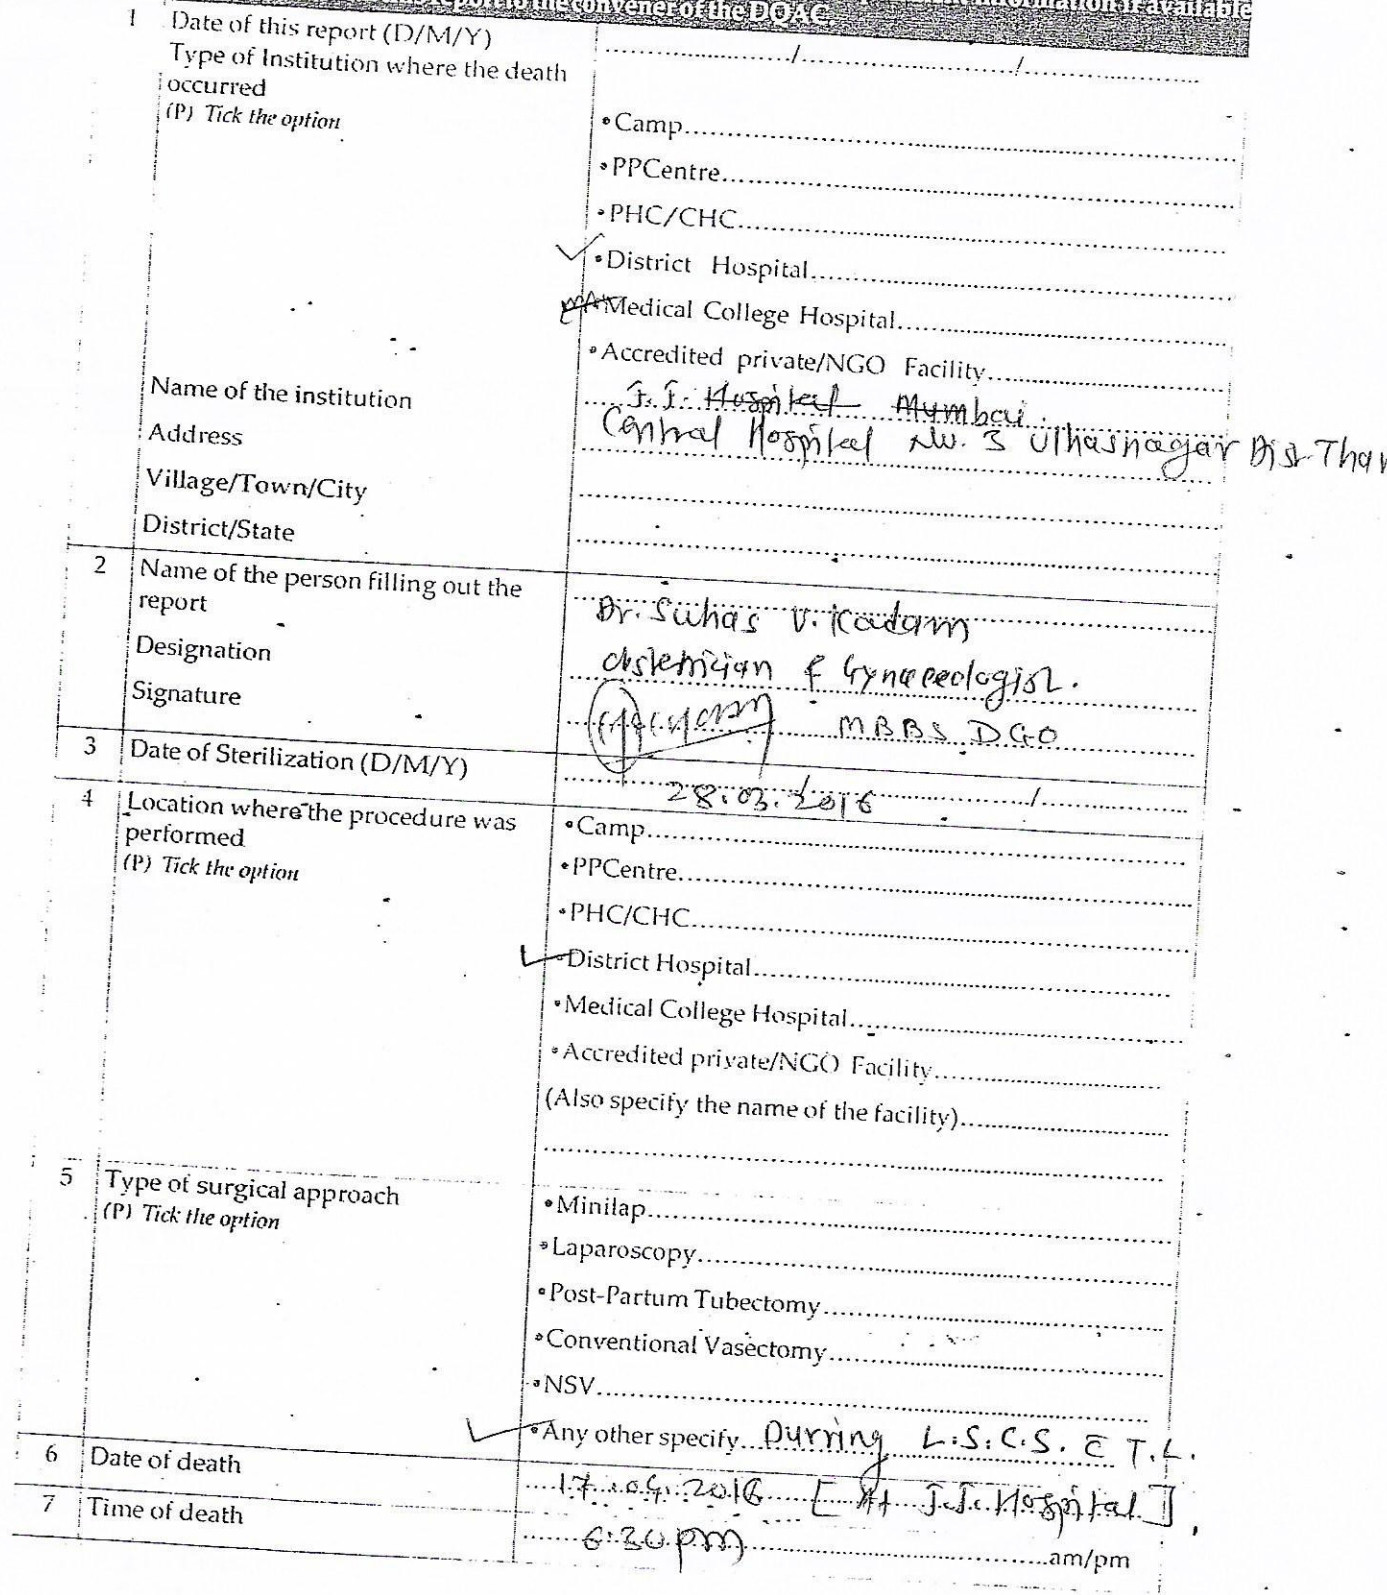 report to the convener of the DQAC.
information if available
1 Date of this report (D/M/Y) ............/............/............
Type of Institution where the death
occurred
(P) Tick the option
•Camp............
•PPCentre............
•PHC/CHC............
✓ •District Hospital............
Medical College Hospital............
•Accredited private/NGO Facility............
Name of the institution J.J. Hospital Mumbai.
Address Central Hospital No. 3 Ulhasnagar Dist Than
Village/Town/City ............
District/State ............
2 Name of the person filling out the
report Dr. Suhas V. Kadam
Designation Obstetrician & Gynaecologist.
Signature MBBS DGO
3 Date of Sterilization (D/M/Y) 28.03.2016 ............/............
4 Location where the procedure was
performed
(P) Tick the option
•Camp............
•PPCentre............
•PHC/CHC............
✓ •District Hospital............
•Medical College Hospital............
•Accredited private/NGO Facility............
(Also specify the name of the facility)............
5 Type of surgical approach
(P) Tick the option
•Minilap............
•Laparoscopy............
•Post-Partum Tubectomy............
•Conventional Vasectomy............
•NSV............
✓ •Any other specify Durring L.S.C.S. c̄ T.L.
6 Date of death 17.04.2016 [ At J.J. Hospital ],
7 Time of death 6:30 pm ............am/pm